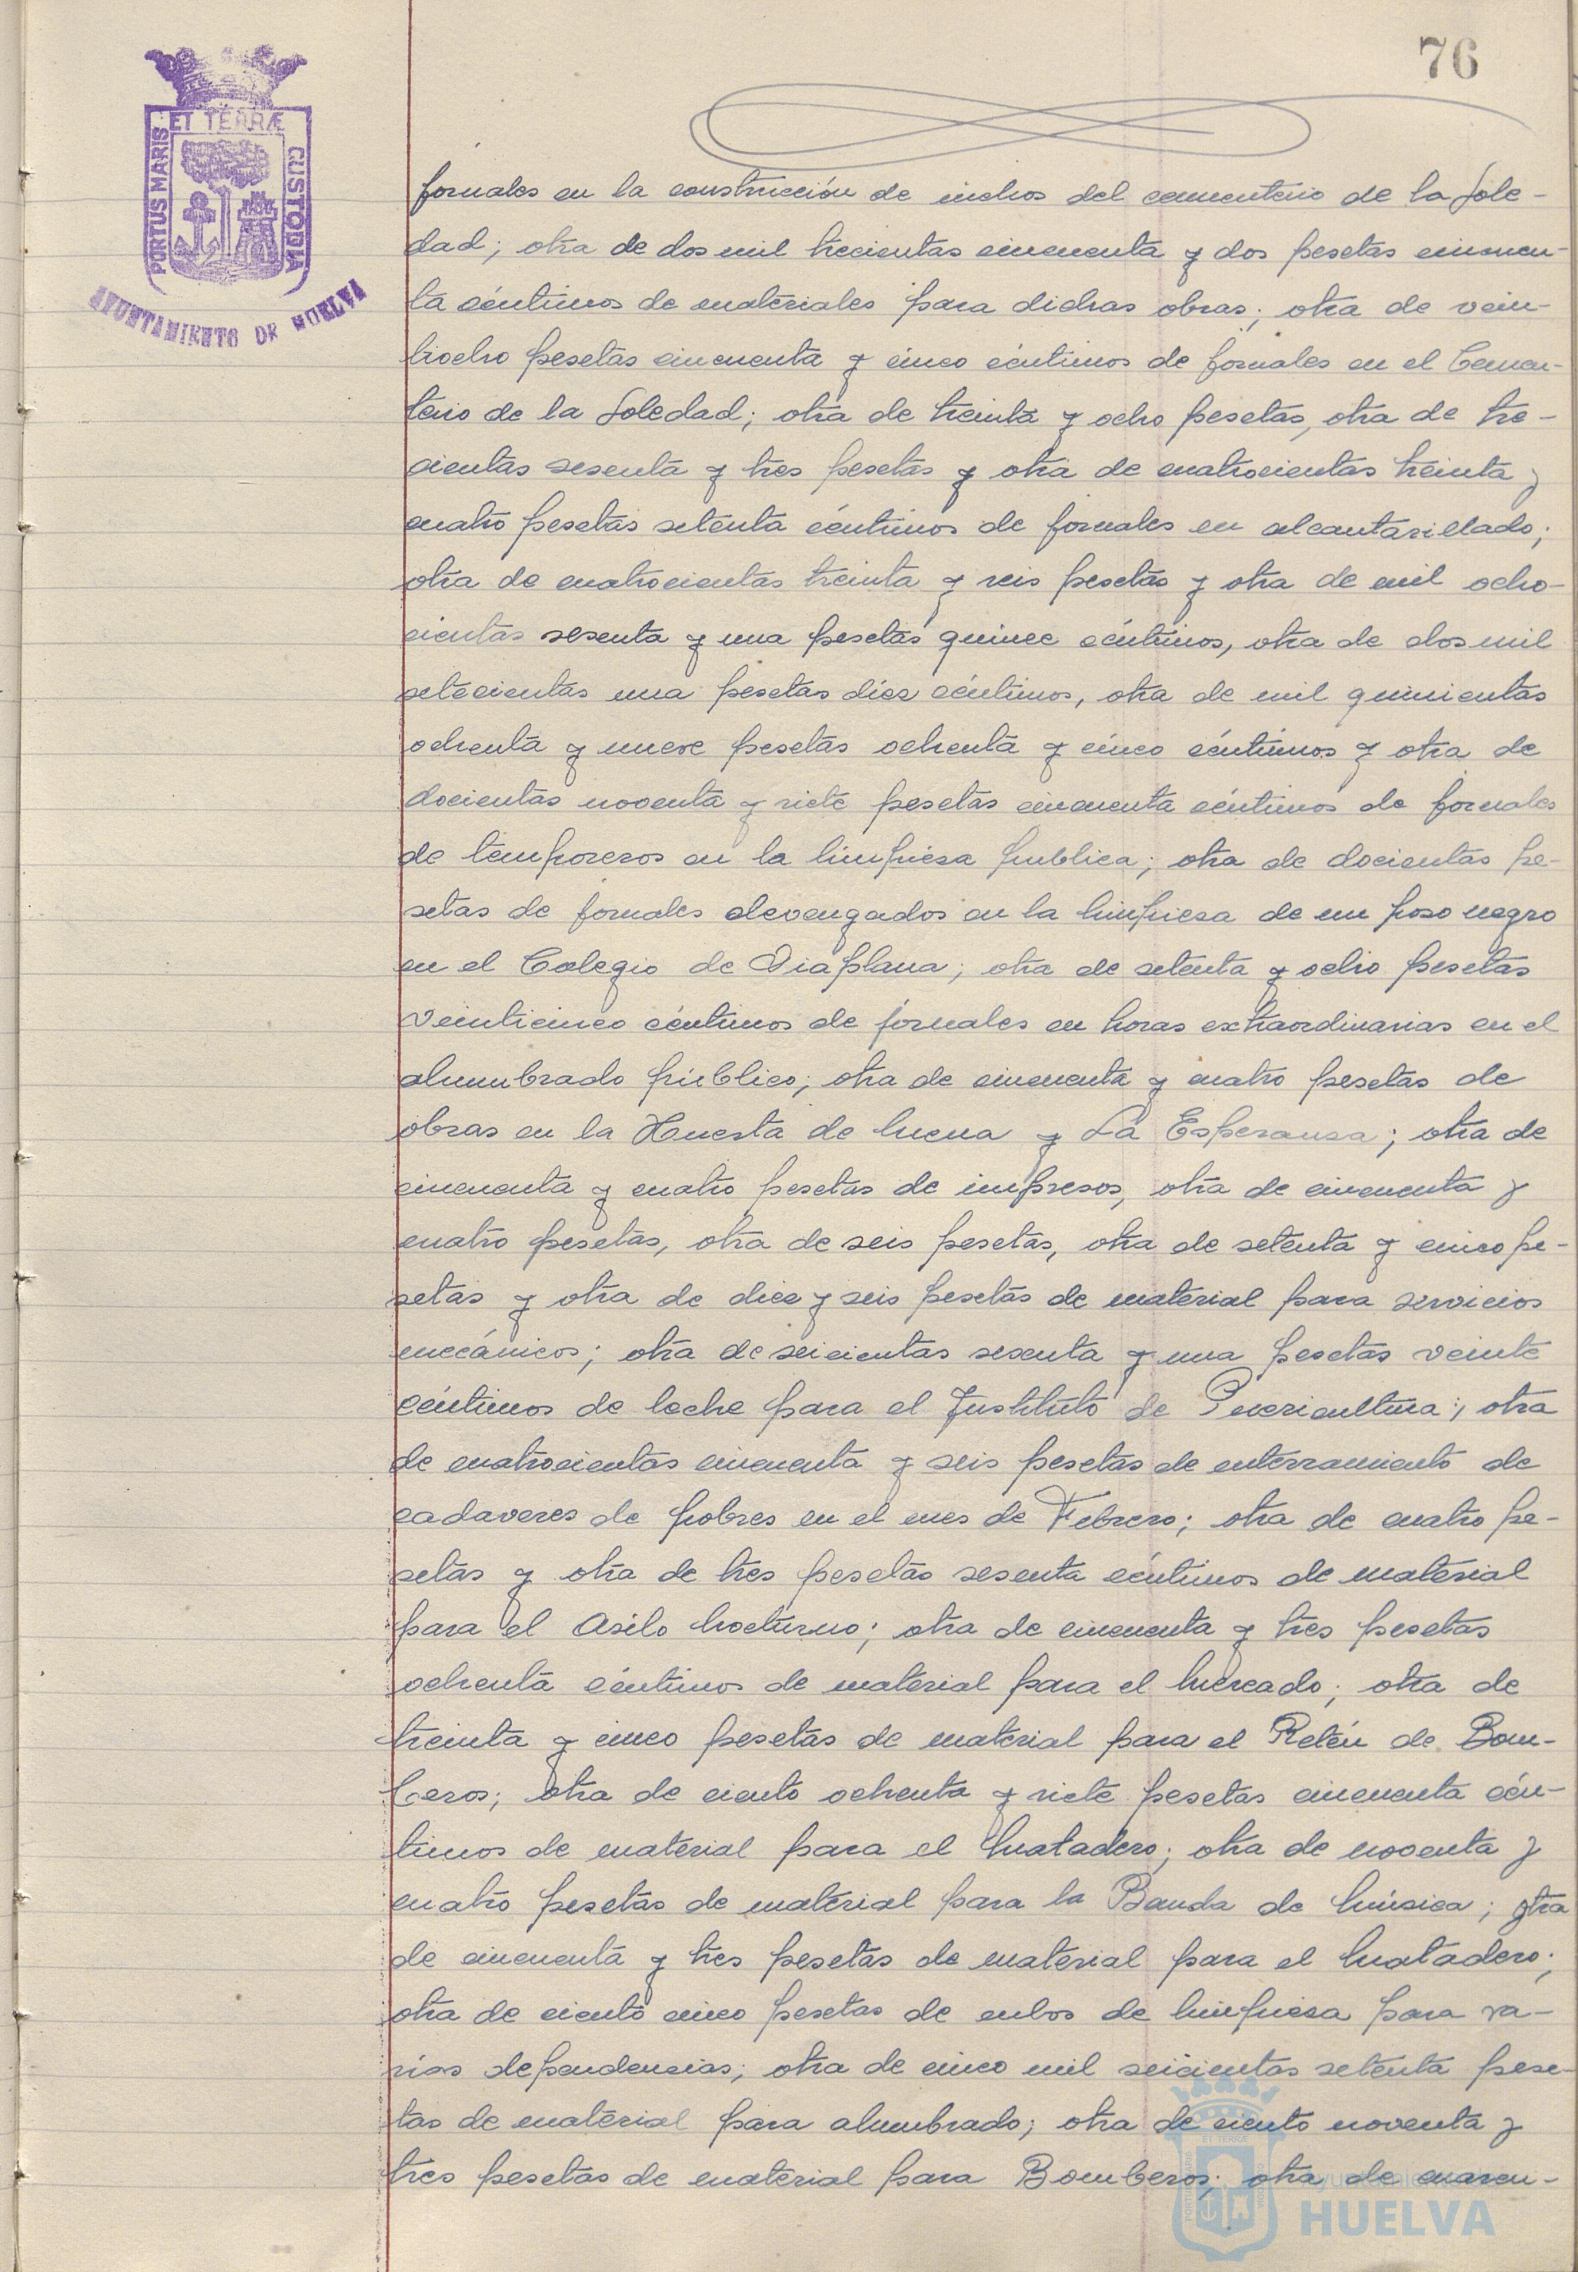 76
ET TERRÆ
PORTUS MARIS
CUSTODIA
AYUNTAMIENTO DE HUELVA
jornales en la construcción de nichos del cementerio de la Sole-
dad; otra de dos mil trecientas cincuenta y dos pesetas cincuen-
ta céntimos de materiales para dichas obras; otra de vein-
tiocho pesetas cincuenta y cinco céntimos de jornales en el Cemen-
terio de la Soledad; otra de treinta y ocho pesetas, otra de tre-
cientas sesenta y tres pesetas y otra de cuatrocientas treinta y
cuatro pesetas setenta céntimos de jornales en alcantarillado;
otra de cuatrocientas treinta y seis pesetas y otra de mil ocho-
cientas sesenta y una pesetas quince céntimos, otra de dos mil
setecientas una pesetas diez céntimos, otra de mil quinientas
ochenta y nueve pesetas ochenta y cinco céntimos y otra de
docientas noventa y siete pesetas cincuenta céntimos de jornales
de temporeros en la limpieza publica; otra de docientas pe-
setas de jornales devengados en la limpiesa de un poso negro
en el Colegio de Viaplana; otra de setenta y ocho pesetas
veinticinco céntimos de jornales en horas extraordinarias en el
alumbrado público; otra de cincuenta y cuatro pesetas de
obras en la Huerta de Mena y La Esperansa; otra de
cincuenta y cuatro pesetas de impresos, otra de cincuenta y
cuatro pesetas, otra de seis pesetas, otra de setenta y cinco pe-
setas y otra de diez y seis pesetas de material para servicios
mecánicos; otra de seicientas sesenta y una pesetas veinte
céntimos de leche para el Instituto de Puericultura; otra
de cuatrocientas cincuenta y seis pesetas de enterramiento de
cadaveres de pobres en el mes de Febrero; otra de cuatro pe-
setas y otra de tres pesetas sesenta céntimos de material
para el Asilo Nocturno; otra de cincuenta y tres pesetas
ochenta céntimos de material para el Mercado; otra de
treinta y cinco pesetas de material para el Retén de Bom-
beros; otra de ciento ochenta y siete pesetas cincuenta cén-
timos de material para el Matadero; otra de noventa y
cuatro pesetas de material para la Banda de Música; otra
de cincuenta y tres pesetas de material para el Matadero;
otra de ciento cinco pesetas de cubos de limpiesa para va-
rias dependencias; otra de cinco mil seicientas setenta pese-
tas de material para alumbrado; otra de ciento noventa y
tres pesetas de material para Bomberos; otra de cuaren-
HUELVA